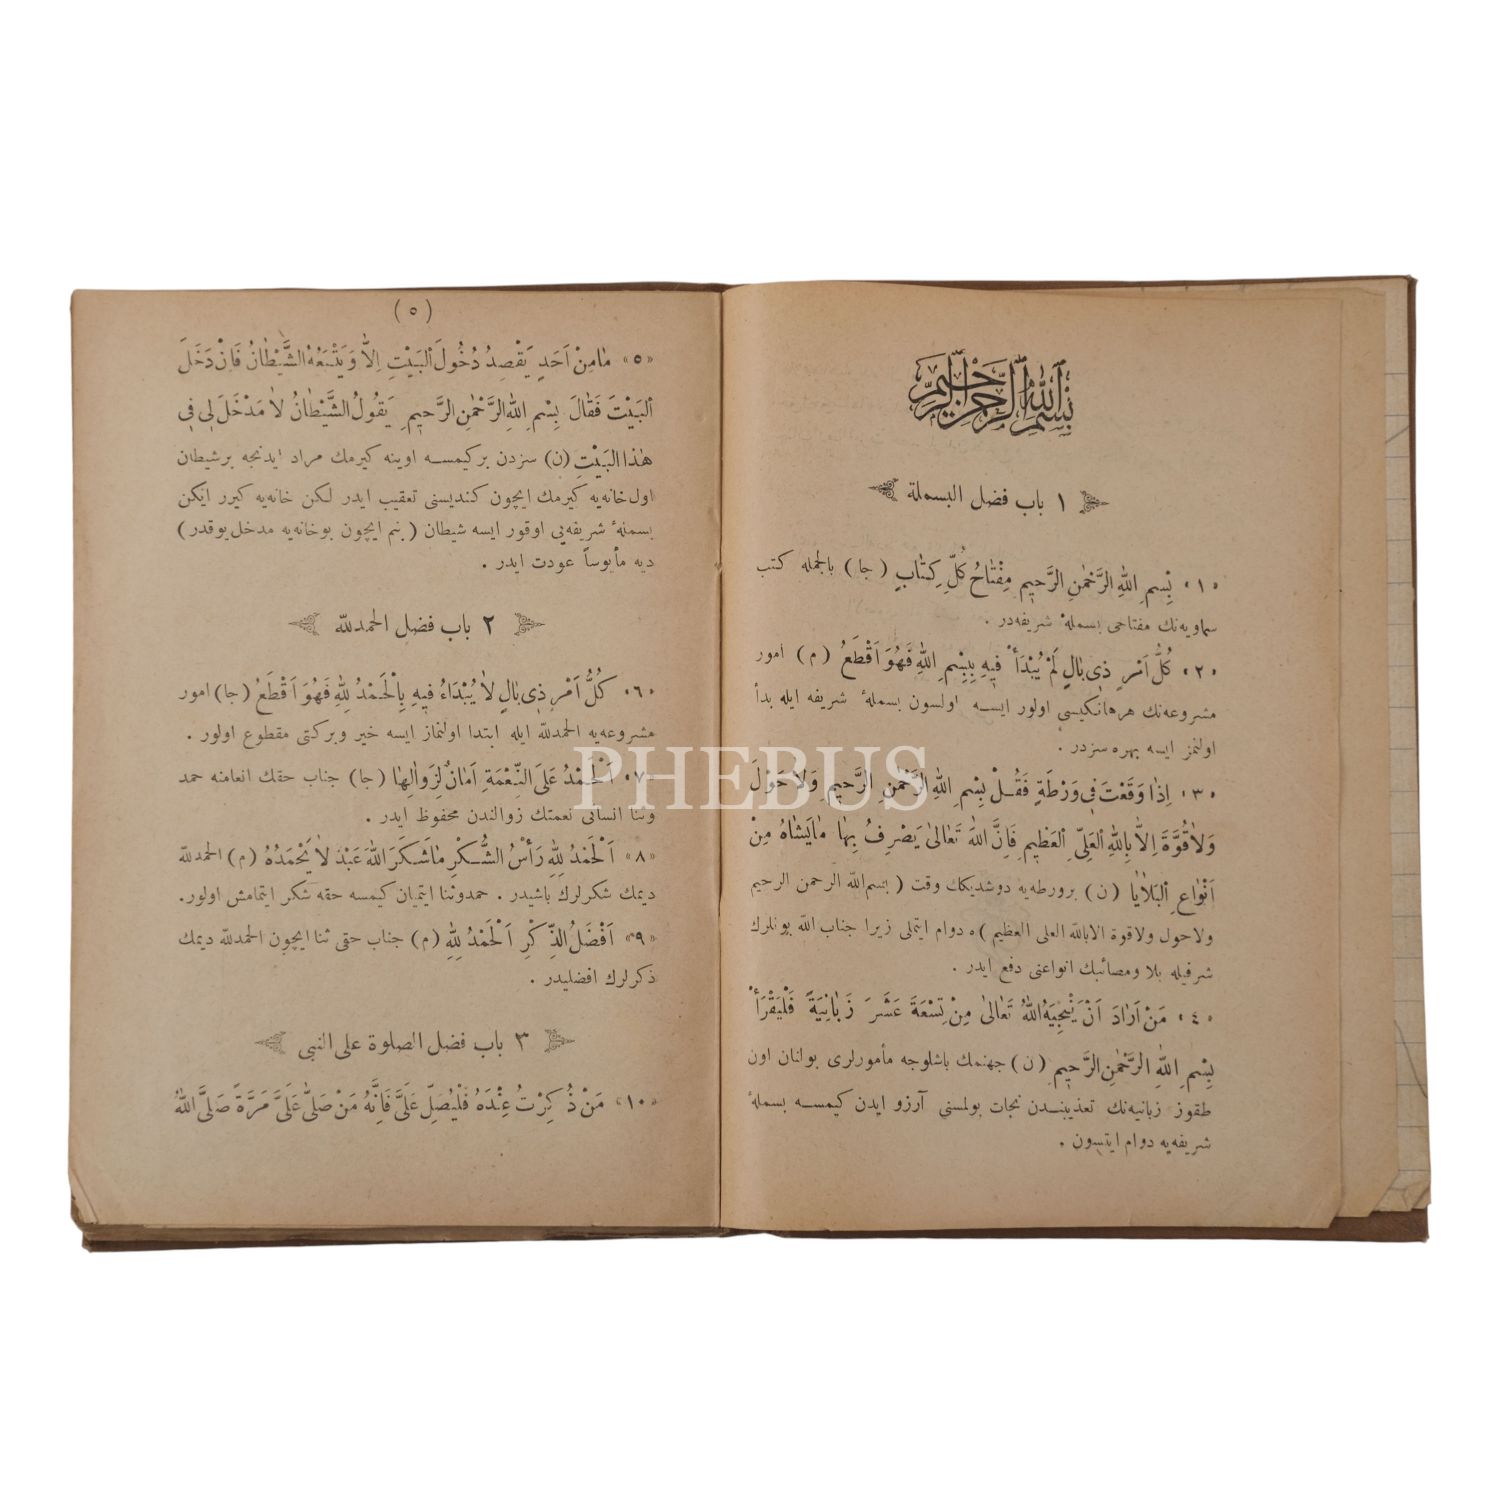 بسم الله الرحمن الرحيم
١ باب فضل البسملة
«١» بِسْمِ اللهِ الرَّحْمٰنِ الرَّحِيمِ مِفْتَاحُ كُلِّ كِتَابٍ (جا) بالجمله كتب
سماويه‌نك مفتاحى بسملهٔ شريفه‌در .
«٢» كُلُّ اَمْرٍ ذِى بَالٍ لَمْ يُبْدَأْ فِيهِ بِبِسْمِ اللهِ فَهُوَ اَقْطَعُ (م) امور
مشروعه‌نك هرهانكيسى اولور ايسه اولسون بسملهٔ شريفه ايله بدأ
اولنمز ايسه بهره سزدر .
«٣» اِذَا وَقَعْتَ فِى وَرْطَةٍ فَقُلْ بِسْمِ اللهِ الرَّحْمٰنِ الرَّحِيمِ وَلَا حَوْلَ
وَلَا قُوَّةَ اِلَّا بِاللهِ الْعَلِىِّ الْعَظِيمِ فَاِنَّ اللهَ تَعَالٰى يَصْرِفُ بِهَا مَايَشَاءُ مِنْ
اَنْوَاعِ الْبَلَايَا (ن) برورطه‌يه دوشديكك وقت (بسم الله الرحمن الرحيم
ولاحول ولاقوة الابالله العلى العظيم)ه دوام ايتملى زيرا جناب الله بونلرك
شرفيله بلا ومصائبك انواعنى دفع ايدر .
«٤» مَنْ اَرَادَ اَنْ يُنْجِيَهُ اللهُ تَعَالٰى مِنْ تِسْعَةَ عَشَرَ زَبَانِيَةً فَلْيَقْرَأْ
بِسْمِ اللهِ الرَّحْمٰنِ الرَّحِيمِ (ن) جهنمك باشلوجه مأمورلرى بولنان اون
طقوز زبانيه‌نك تعذيبندن نجات بولمسنى آرزو ايدن كيمسه بسملهٔ
شريفه‌يه دوام ايتسون .
(٥)
«٥» مَامِنْ اَحَدٍ يَقْصِدُ دُخُولَ الْبَيْتِ اِلَّا وَيَتْبَعُهُ الشَّيْطَانُ فَاِنْ دَخَلَ
الْبَيْتَ فَقَالَ بِسْمِ اللهِ الرَّحْمٰنِ الرَّحِيمِ يَقُولُ الشَّيْطَانُ لَا مَدْخَلَ لِى فِى
هٰذَا الْبَيْتِ (ن) سزدن بركيمسه اوينه كيرمك مراد ايدنجه برشيطان
اول خانه‌يه كيرمك ايچون كنديسنى تعقيب ايدر لكن خانه‌يه كيرر ايكن
بسملهٔ شريفه‌يى اوقور ايسه شيطان (بنم ايچون بوخانه‌يه مدخل يوقدر)
ديه مأيوساً عودت ايدر .
٢ باب فضل الحمدلله
«٦» كُلُّ اَمْرٍ ذِى بَالٍ لَا يُبْدَاءُ فِيهِ بِاَلْحَمْدُ لِلهِ فَهُوَ اَقْطَعُ (جا) امور
مشروعه‌يه الحمدلله ايله ابتدا اولنماز ايسه خير وبركتى مقطوع اولور .
«٧» اَلْحَمْدُ عَلَى النِّعْمَةِ اَمَانٌ لِزَوَالِهَا (جا) جناب حقك انعامنه حمد
وثنا انسانى نعمتك زوالندن محفوظ ايدر .
«٨» اَلْحَمْدُ لِلهِ رَأْسُ الشُّكْرِ مَاشَكَرَ اللهَ عَبْدٌ لَا يَحْمَدُهُ (م) الحمدلله
ديمك شكرلرك باشيدر . حمدوثنا ايتميان كيمسه حقه شكر ايتمامش اولور.
«٩» اَفْضَلُ الذِّكْرِ اَلْحَمْدُ لِلهِ (م) جناب حقى ثنا ايچون الحمدلله ديمك
ذكرلرك افضليدر .
٣ باب فضل الصلوة على النبى
«١٠» مَنْ ذُكِرْتُ عِنْدَهُ فَلْيُصَلِّ عَلَىَّ فَاِنَّهُ مَنْ صَلَّى عَلَىَّ مَرَّةً صَلَّى اللهُ
PHEBUS